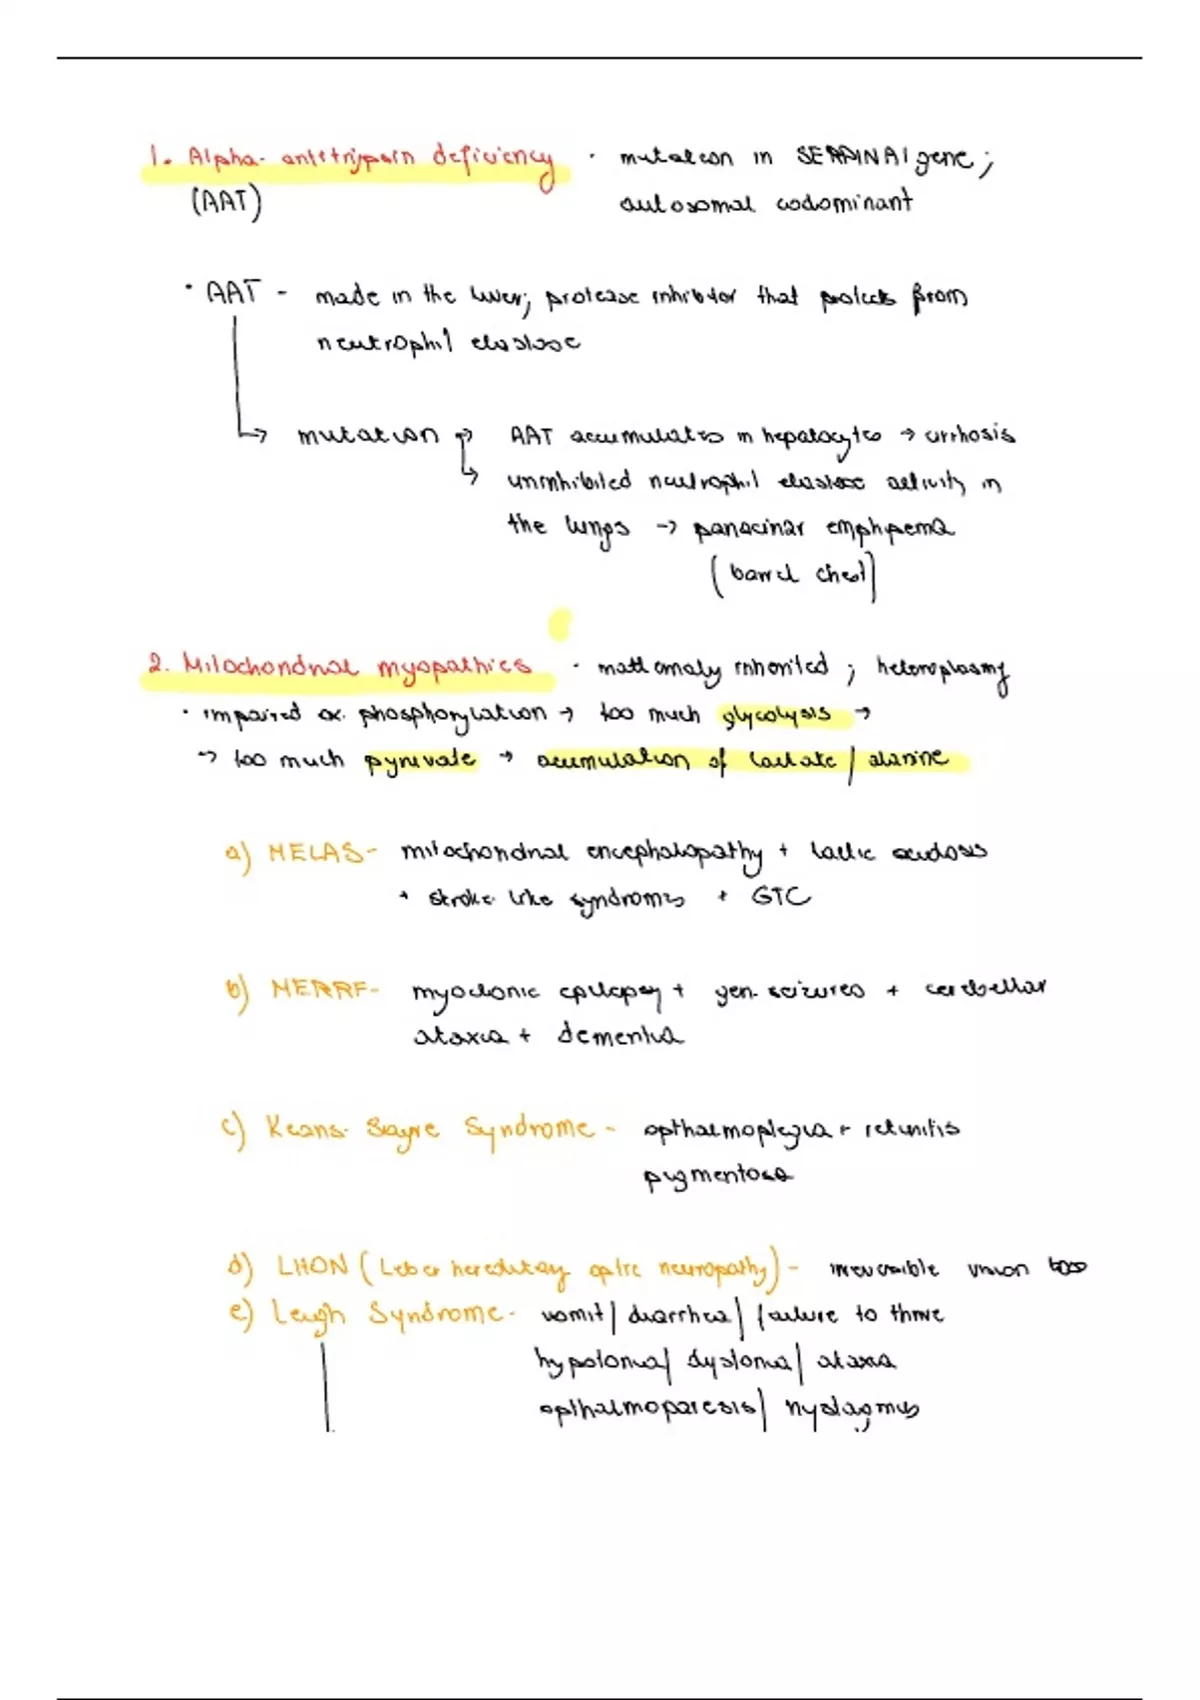 1. Alpha-antitrypsin deficiency · mutation in SERPINA1 gene;
(AAT) autosomal codominant
· AAT - made in the liver; protease inhibitor that protects from
neutrophil elastase
→ mutation → AAT accumulates in hepatocytes → cirrhosis
→ uninhibited neutrophil elastase activity in
the lungs → panacinar emphysema
(barrel chest)
2. Mitochondrial myopathies · maternaly inherited; heteroplasmy
· impaired ox. phosphorylation → too much glycolysis →
→ too much pyruvate → accumulation of lactate / alanine
a) MELAS - mitochondrial encephalopathy + lactic acidosis
+ stroke like syndromes + GTC
b) MERRF - myoclonic epilepsy + gen. seizures + cerebellar
ataxia + dementia
c) Keans-Sayre Syndrome - opthalmoplegia + retinitis
pigmentosa
d) LHON (Leber hereditary optic neuropathy) - irreversible vision loss
e) Leigh Syndrome - vomit / diarrhea / failure to thrive
hypotonia / dystonia / ataxia
opthalmoparesis / nystagmus